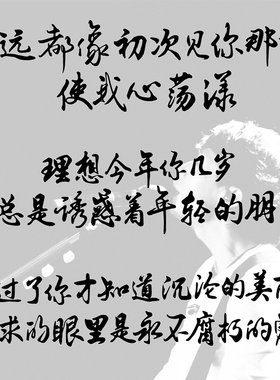 远都像初次见你那
使我心荡漾
理想今年你几岁
总是诱惑着年轻的朋
过了你才知道沉沦的美
求的眼里是永不腐朽的